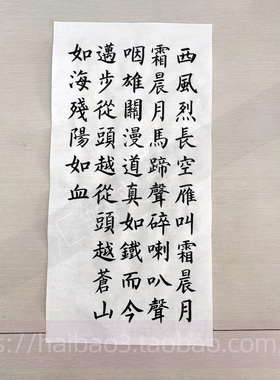 西風烈長空雁叫霜晨月
霜晨月馬蹄聲碎喇叭聲
咽雄關漫道真如鐵而今
邁步從頭越從頭越蒼山
如海殘陽如血
ttps://haibao3.taobao.com/